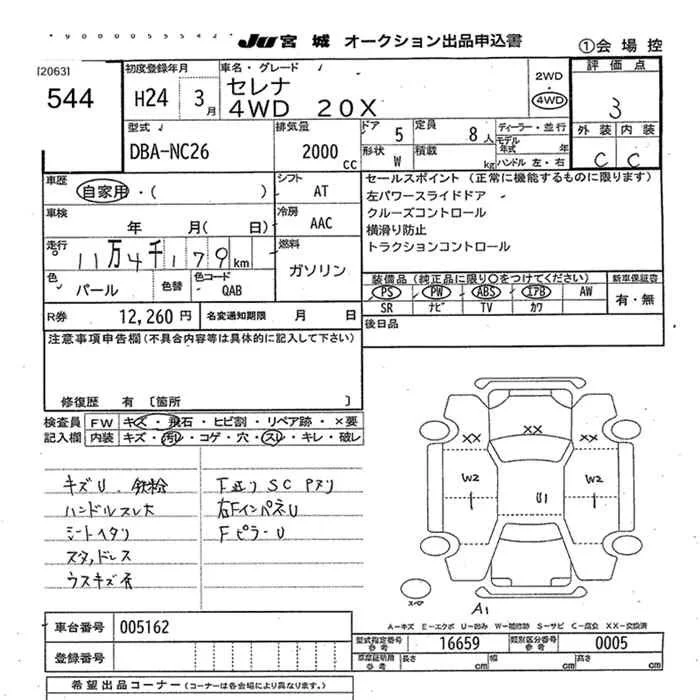 JU 宮城 オークション出品申込書 ①会場控
[2063]
544
初度登録年月 H24 3月
車名・グレード セレナ
4WD 20X
2WD
4WD
評価点 3
外装 内装
C C
型式 DBA-NC26
排気量 2000 CC
ドア 5
定員 8人
形状 W
積載 kg
ディーラー・並行
モデル年式 年
ハンドル 左・右
車歴 自家用・( )
シフト AT
車検 年 月( 日)
冷房 AAC
走行 11万4千179km
燃料 ガソリン
色 パール 色替
色コード QAB
セールスポイント (正常に機能するものに限ります)
左パワースライドドア
クルーズコントロール
横滑り防止
トラクションコントロール
装備品(純正品に限り○をつけてください)
新車保証書
PS PW ABS エアB AW
SR ナビ TV カワ
有・無
R券 12,260円
名変通知期限 月 日
後日品
注意事項申告欄(不具合内容等は具体的に記入して下さい)
修復歴 有 [箇所 ]
検査員記入欄
FW キズ・飛石・ヒビ割・リペア跡・×要
内装 キズ・汚レ・コゲ・穴・スレ・キレ・破レ
キズU 鉄粉
ハンドルスレ大
シートヘタリ
スタッドレス
ウスキズ有
F廻りSC Pヌリ
右FインパネU
FピラーU
XX XX XX
W2 U1 W2
スペア
A1
A-キズ E-エクボ U-凹み W-補修跡 S-サビ C-腐食 XX-交換済
車台番号 005162
登録番号
型式指定番号 参考 16659
類別区分番号 参考 0005
車庫証明用 参考 長さ cm 幅 cm 高さ cm
希望出品コーナー (コーナーは各会場により異なります。)